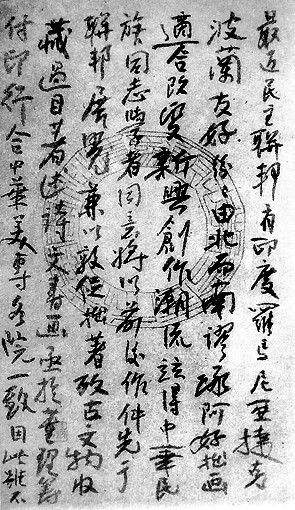 最近民主聯邦有印度羅馬尼亞捷克
波蘭友好後之由北而南謬阿好拙画
適合改變新興創作潮流得中華民
族同志者同意將以前後作件先于
聯邦展覽兼以敦促拙著攷古文物收
藏過目著述詩文書画亟於整理籌
付印行合中華美專各院一致因此雖不